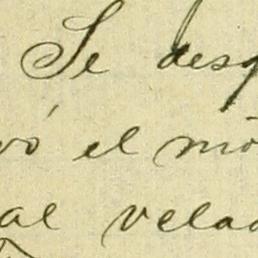 Se desq
vó el mo
al velad